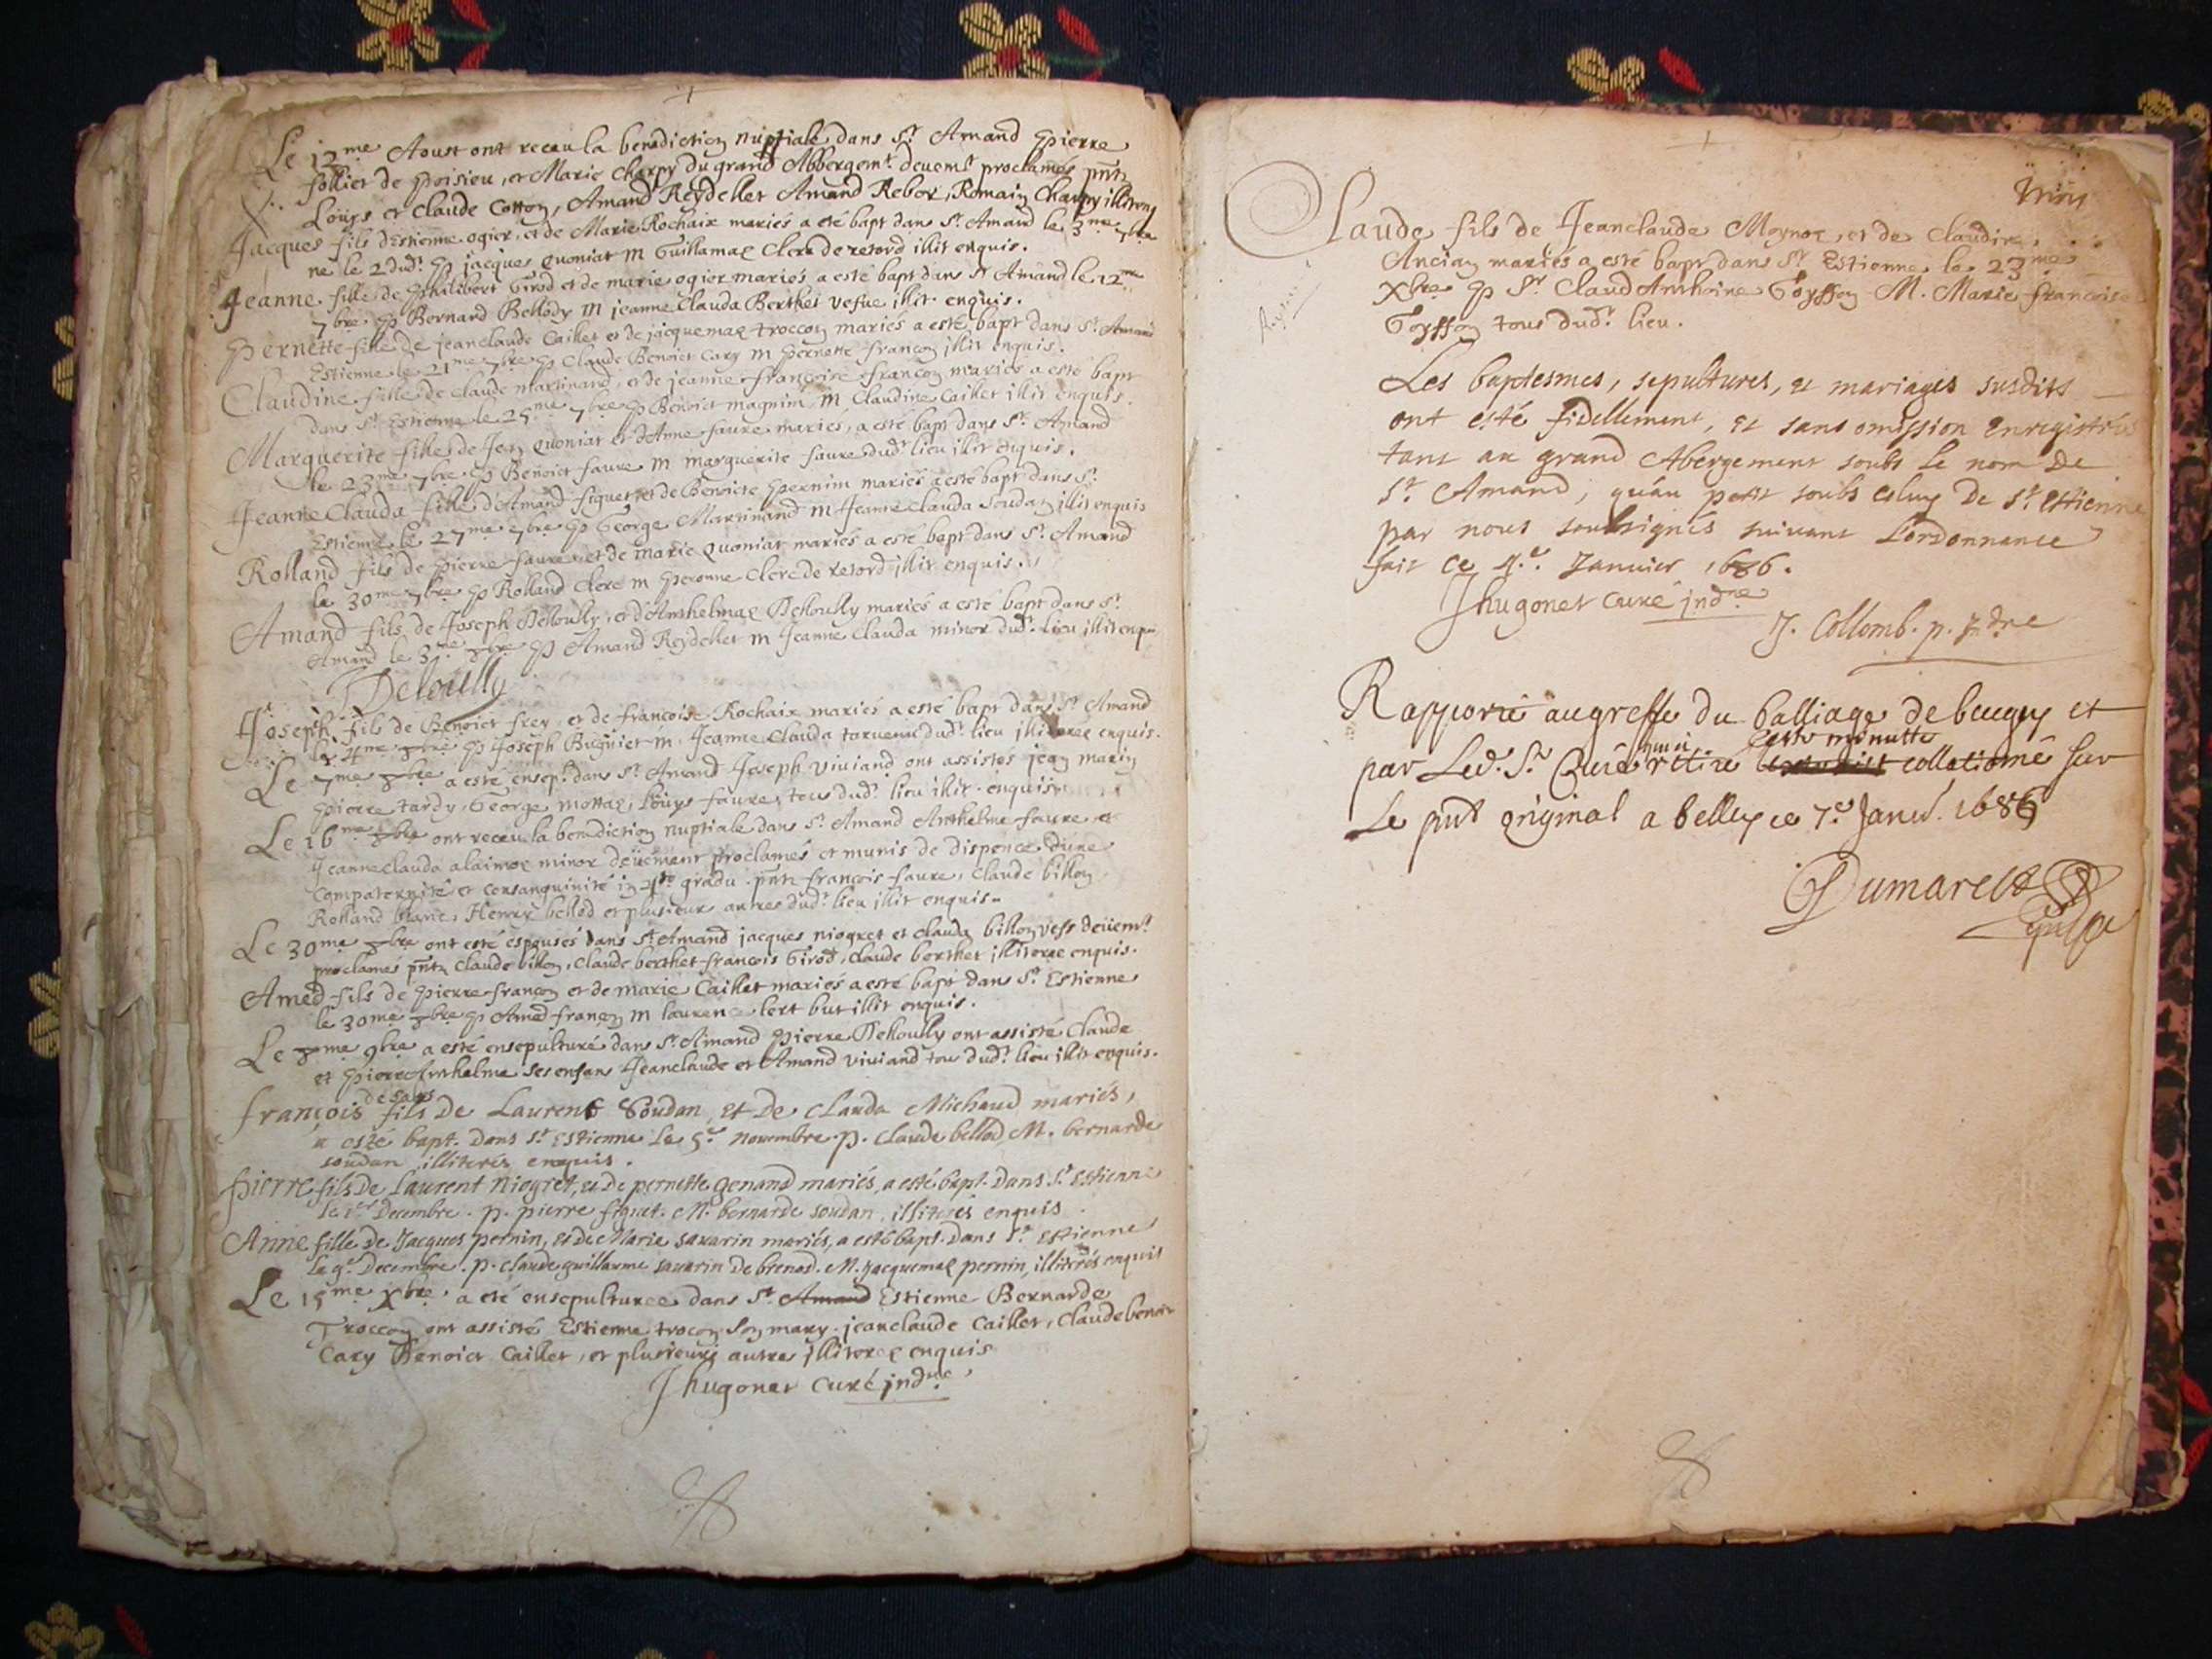 Le 12me Aoust ont receu la benediction nuptiale dans St Amand Pierre
follier de Poisieu, et Marie Charpy du grand Abbergemt. deuemt proclamés pnts
Loüys et Claude Cotton, Amand Reydellet Amand Rebox, Romain Charpy
Jacques fils d'Estienne ogier, et de Marie Rochaix mariés a eté bapt dans St Amand le 3me 7bre
ne le 2 dudt. P jacques quoniat M Guillamaz Clerc de retord illit enquis.
Jeanne fille de Philibert Girod et de marie ogier mariés a esté bapt dans St Amand le 12me
7bre P Bernard Bellody M jeanne Clauda Berthet vefue illit. enquis.
Pernette fille de jeanclaude Caillet et de jacquemaz troccon mariés a esté bapt dans St. Amand
Estienne le 21me 7bre P Claude Benoict Cary M Pernette françon illit enquis.
Claudine fille de Claude martinand, et de jeanne françoise françon mariés a esté bapt
dans St Estienne le 25me 7bre P Benoict magnim M Claudine Caillet illit enquis.
Marguerite fille de Jean quoniat et d'Anne faure mariés, a esté bapt dans St. Amand
le 23me 7bre P Benoict faure M marguerite faure dudt lieu illit enquis.
Jeanne Clauda fille d'Amand figuet et de Benoicte Pernim mariés a esté bapt dans St.
Estienne le 27me 7bre P George Martinand M Jeanne Clauda Soudan illit enquis
Rolland fils de Pierre faure et de marie quoniat mariés a esté bapt dans St. Amand
le 30me 7bre P Rolland Clerc M Peronne Clerc de retord illit enquis.
Amand fils de Joseph Delloully, et d'Anthelmaz Delloully mariés a esté bapt dans St.
Amand le 3me 8bre P Amand Reydellet M Jeanne Clauda minor dudt. lieu illit enqu
Deloully
Joseph fils de Benoict frey, et de françoise Rochaix mariés a esté bapt dans St Amand
le 4me 8bre P Joseph Buguiet M. Jeanne Clauda dudt lieu enquis.
Le 7me 8bre a esté ensep. dans St Amand Joseph viuiand ont assistés jean marin
Pierre tardy, George mottaz, Loüys faure, tous dudt. lieu illit. enquis
Le 16me 8bre ont receu la benediction nuptiale dans St Amand Anthelme faure et
Jeanne Clauda alaimoz minor deüemant proclamés et munis de dispence d'une
Compaternité et consanguinité in 4to gradu. pnts françois faure, Claude billon
Rolland blanc, Henry bellod et plusieur autres dudt. lieu illit enquis.
Le 30me 8bre ont esté espousés dans St Amand jacques niogret et Clauda billon vefs deüemt
proclamés pnts Claude billon, Claude berthet françois Girod, Claude berthet illiterez enquis.
Amed fils de Pierre françon et de marie Caillet mariés a esté bapt dans St Estienne
le 30me 8bre P Amed françon M laurence illit enquis.
Le 8me 9bre a esté ensepulturé dans St Amand Pierre Delloully ont assisté Claude
et Pierre Anthelme ses enfans Jeanclaude et Amand viuiand tous dudt. lieu illit enquis.
françois fils De Laurent Soudan, et De Clauda Michaud mariés,
a esté bapt. dans St Estienne le 5e. nouembre. p. Claude bellod, M. bernarde
soudan illiterés enquis.
pierre fils De Laurent Niogret, et De pernette genand mariés, a esté bapt. dans St Estienne
le 1er Decembre. p. pierre figuet. M. bernarde soudan, illiterés enquis.
Anne fille de Jacques pernin, et De Marie sauarin mariés, a esté bapt. dans St. Estienne
Le 9e Decembre. p. claude guillarme sauarin De brenod. M. Jacquemaz pernin, illiterés enquis
Le 15me Xbre a eté ensepulturee dans St Amand Estienne Bernarde
Troccon ont assisté Estienne trocon son mary. jeanclaude Caillet, Claude benoit
Cary Benoict Caillet, et plusieurs autres illiterez enquis
J hugonet Curé jndne
Claude fils de Jeanclaude Moynoz, et de Claudine
Ancian mariés a esté bapt dans St Estienne le 23me
Xbre P Sr Claud Anthoine Goyffon M. Marie françoise
Goyffon tous dudt. lieu.
Les baptesmes, sepultures, et mariages susdits
ont esté fidellement, et sans omission enregistrés
tant au grand Abergement soubs le nom de
St Amand, qu'au petit soubs celuy de St Estienne
par nous soubsignés suiuant L'ordonnance
fait ce 4e. Januier 1686.
J hugonet curé jndne
J. Collomb. p. jndne
Rapporté au greffe du balliage de beugey et
par Led. Sr Curé retiré cette minutte collationné sur
Le pnt original a belley ce 7e Janv. 1686
Dumarest